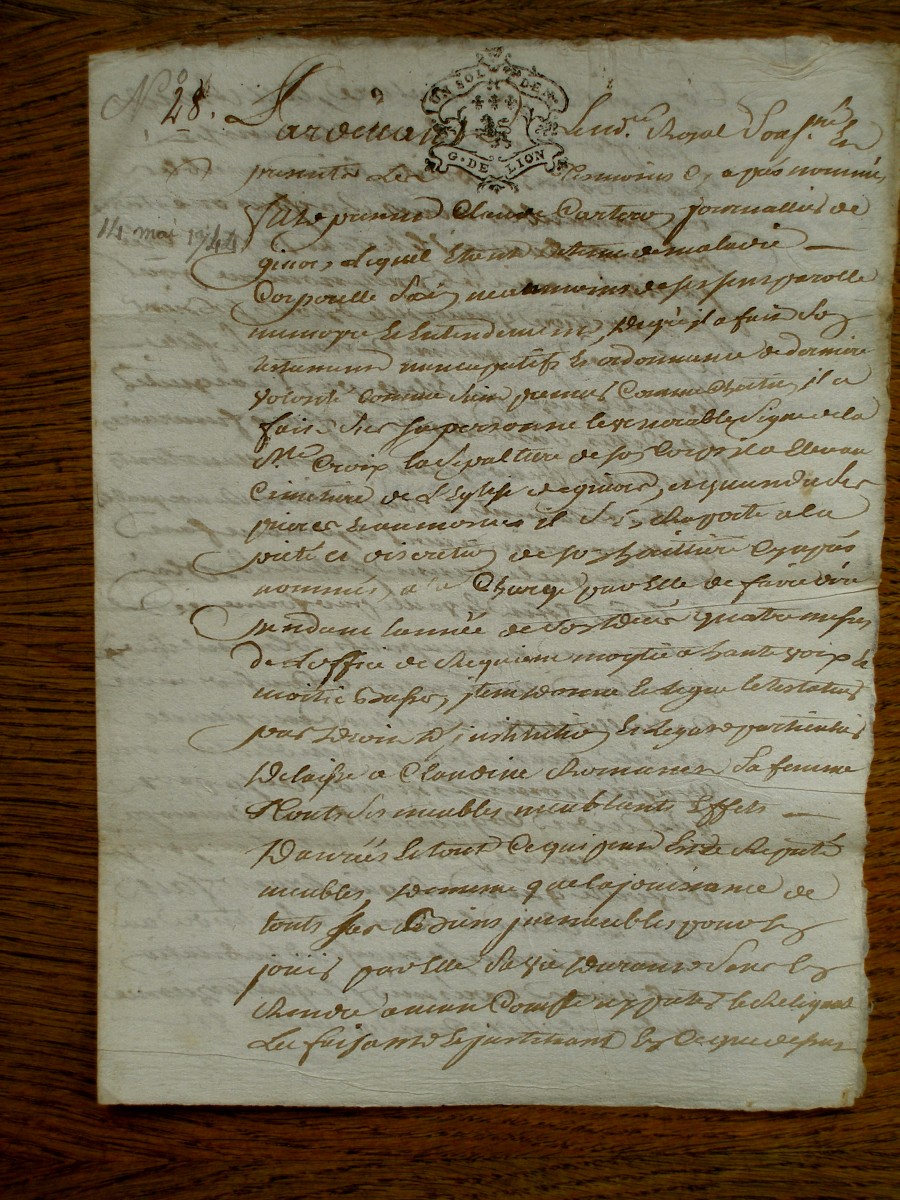 N° 28. Pardevant Le nore Royal soussigné Et
UN SOL DE
G. DE LION
presents Les témoins cy apés nommés
fut présent Claude
14 mai 1744
journallier de
giuors, Lequel Etant atteint de maladie
Corporelle sain neanmoins de ses sens parolle
memoyre Et Entendement, De gré il a fait Son
testament nuncupatif Et ordonnance de derniere
volonté comme suit premier Comme Chretien il a
fait Sur sa personne le venerable Signe de la
Ste Croix la Sepulture de son Corps il a Eleu au
Cimetiere de L'Eglise de giuors, et quand à Ses
prieres Et aumones il s'en Raporte a la
pieté et discretion de son heritiere Cy apés
nommée, a la Charge par Elle de faire dire
pendant l'année de son deces quatre messes
de L'office de Requiem moytié a haute voix Et
moitié a basse, jtem donne Et legue le testateur
par droit D'jnstitution Et legat particulier
Delaisse a Claudine Romanet Sa femme
touts Ses meubles meublants Effets
Danrées Et tout Ce qui peut Estre Reputé
meubles, De meme que la jouissance de
touts Ses Biens jmmeubles pour En
jouir par Elle Sa vie Durant Sans En
Rendre aucun Compte ny prêter le Reliquat
Les faisant Et instituant En Ce que dessus